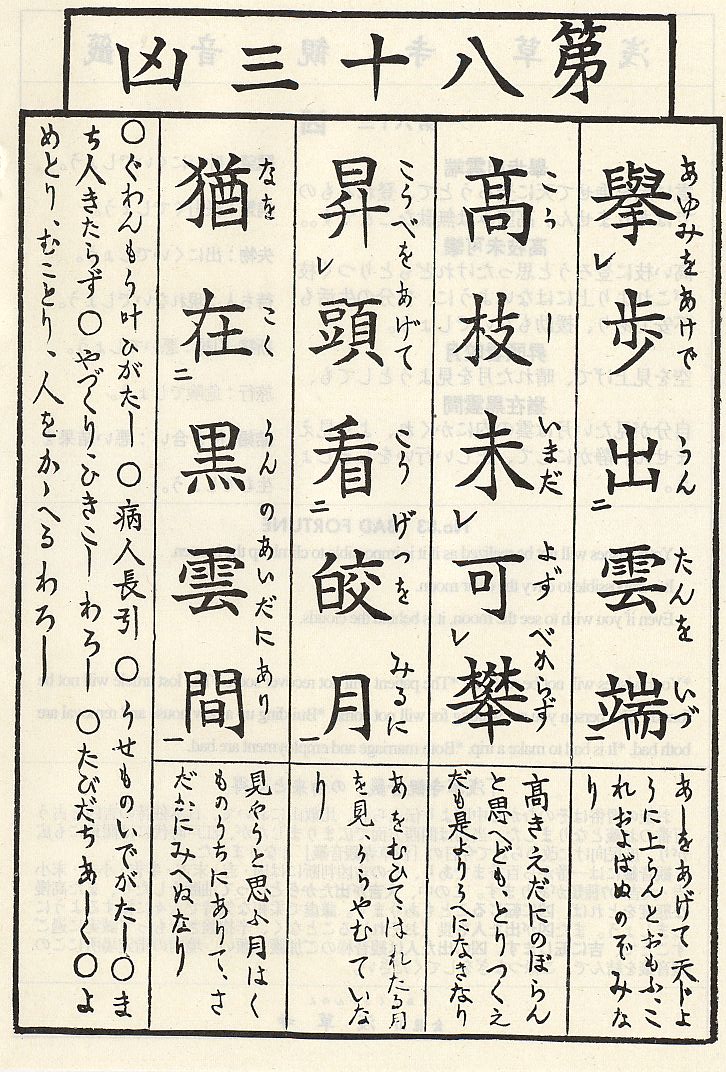 第八十三凶
擧レ歩出二雲端一
あゆみをあけで うん たんを いづ
あしをあげて天じよ
うに上らんとおもふ、こ
れおよばぬのでみな
り
高枝未レ可レ攀
こうし いまだ よず べからず
高きえだにのぼらん
と思へどもとりつくえ
だも是よりうへになきなり
昇レ頭看二皎月一
こうべをあげて こうげつを みるに
あをむひて、はれたる月
を見うらやむていな
り
猶在二黒雲間一
なを こく うんのあいだにあり
見やうと思ふ月はく
ものうちにありて、さ
だかにみへぬなり
〇ぐわんもう叶ひがたし 〇病人長引 〇うせものいでがたし 〇ま
ち人きたらず 〇やづくり、ひきこしわろし 〇たびだちあしし 〇よ
めとり、むことり、人をかゝへるわろし